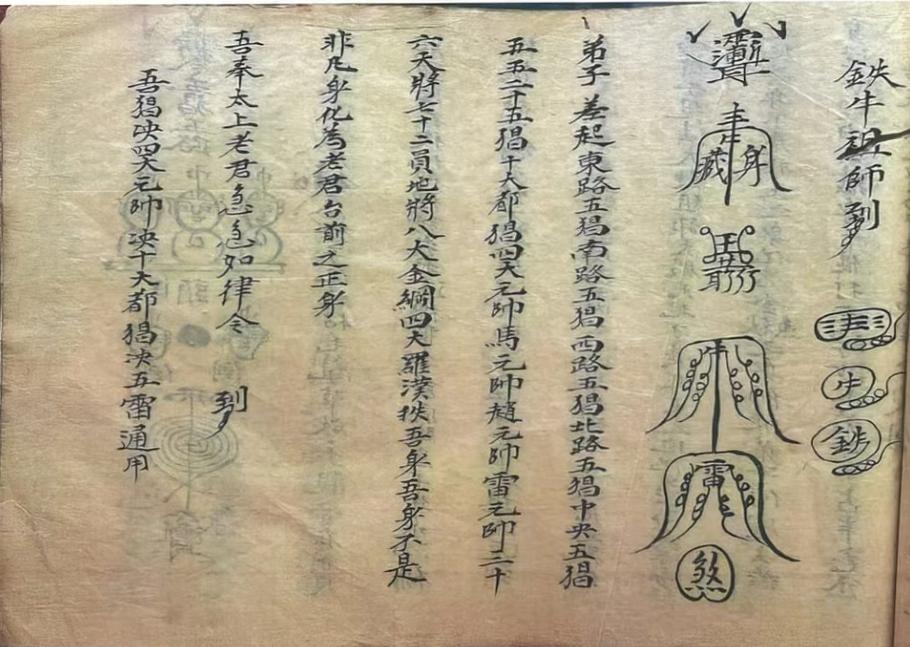 鉄牛祖師到
牛
鉄
藏身
雷
煞
弟子差起東路五猖南路五猖西路五猖北路五猖中央五猖
五五二十五猖十大都猖四大元帥馬元帥趙元帥雷元帥二十
六天將七十二員地將八大金綱四大羅漢扶吾身吾身不是
非凡身化為老君台前之正身
吾奉太上老君急急如律令 到
吾猖决四大元帥决十大都猖决五雷通用